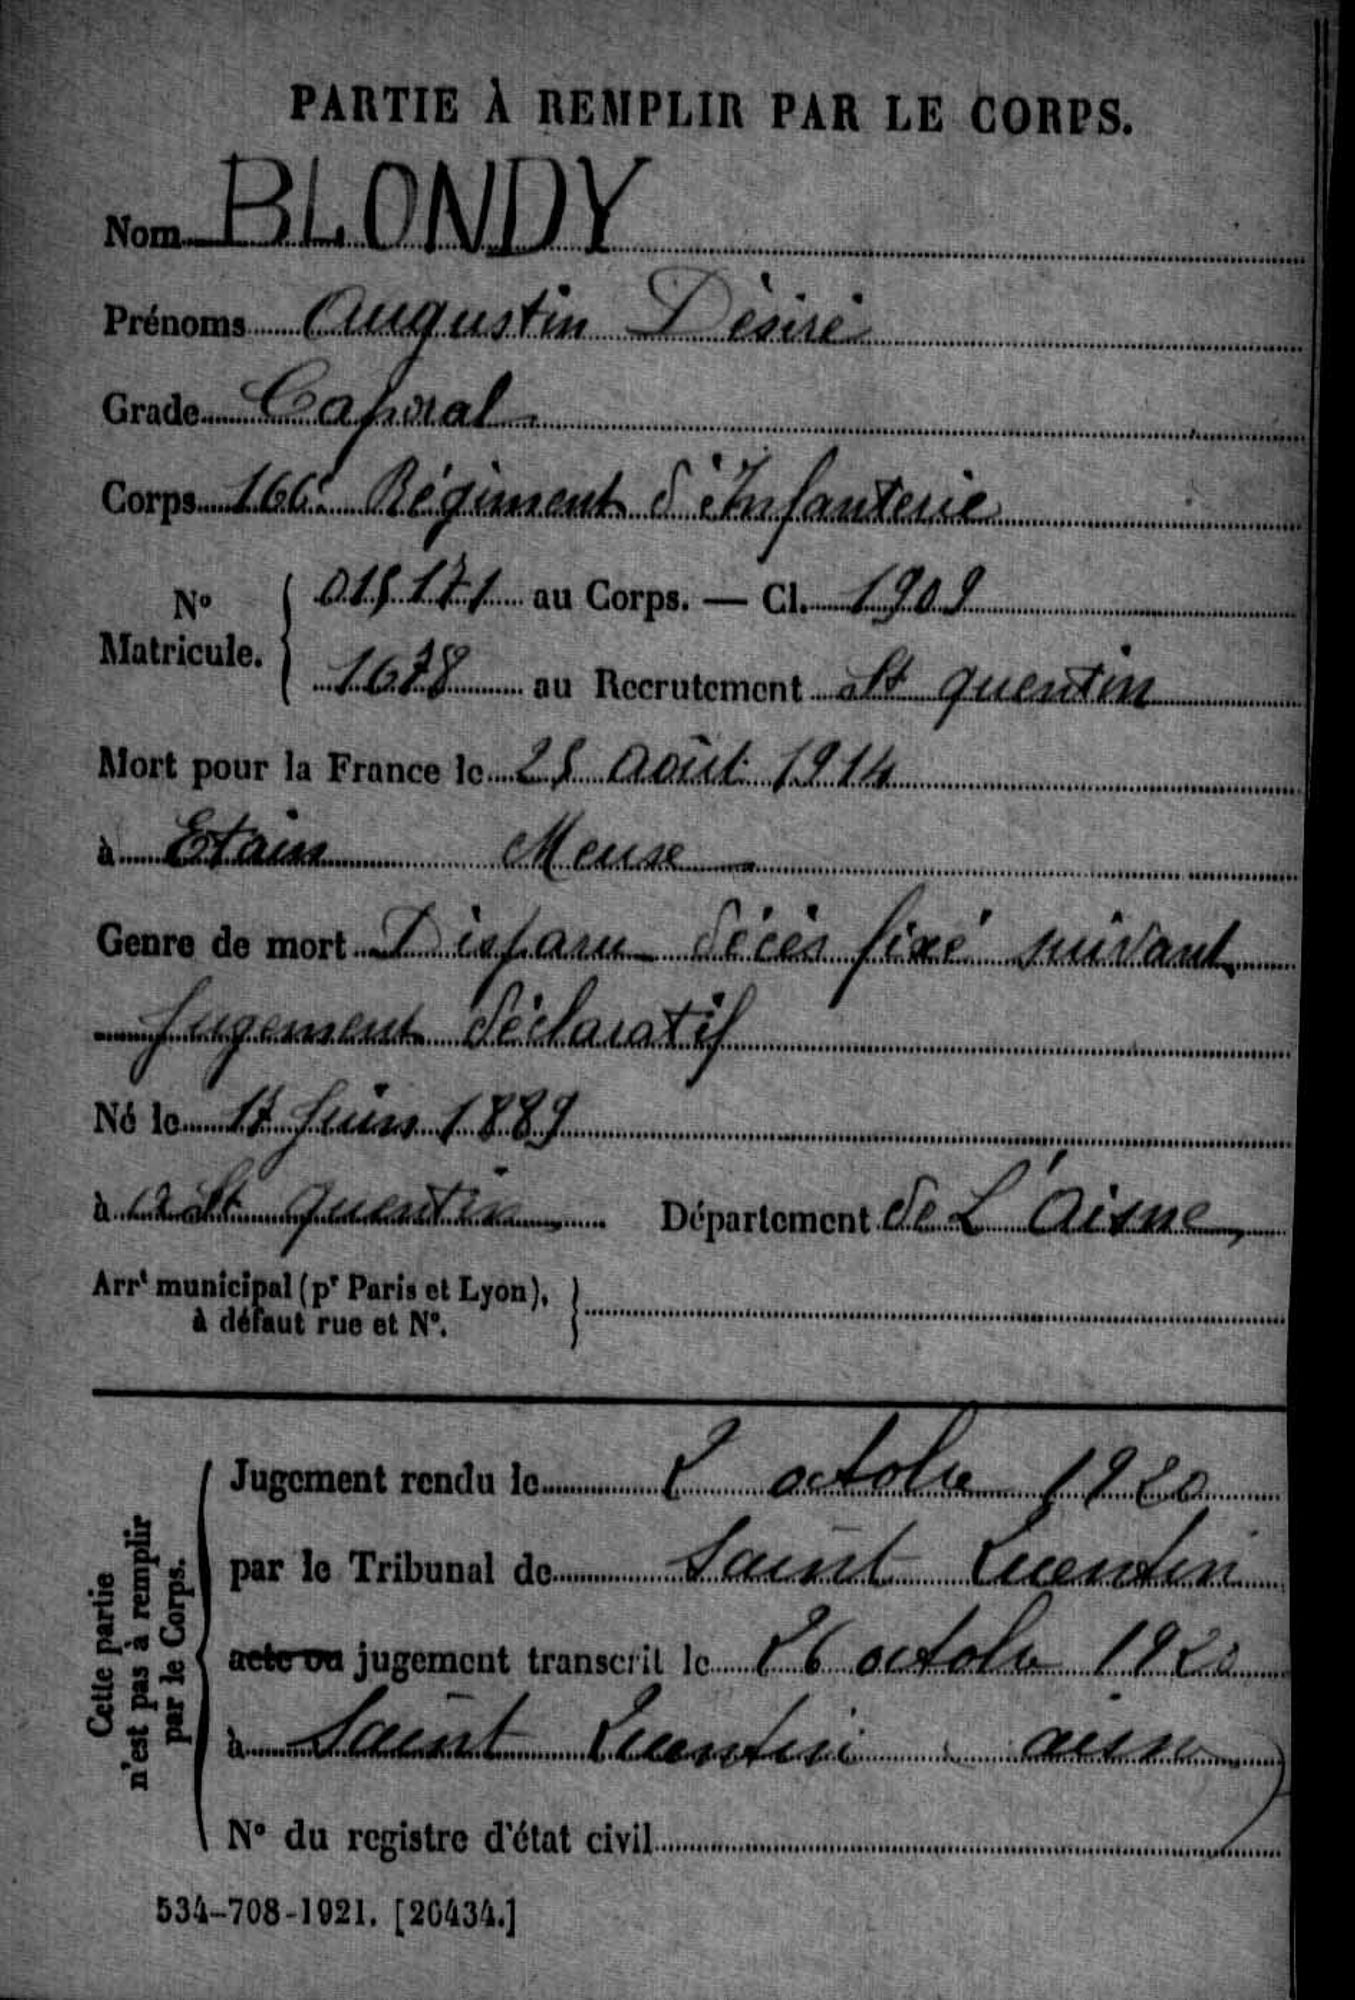 PARTIE À REMPLIR PAR LE CORPS.
Nom BLONDY
Prénoms Augustin Désiré
Grade Caporal
Corps 166e Régiment d'Infanterie
N° Matricule. 015171 au Corps. — Cl. 1909
1678 au Recrutement St quentin
Mort pour la France le 25 Août 1914
à Etain Meuse
Genre de mort Disparu décès fixé suivant
Jugement déclaratif
Né le 17 Juin 1889
à St quentin Département de L'Aisne
Arrt municipal (pr Paris et Lyon),
à défaut rue et N°.
Cette partie
n'est pas à remplir
par le Corps.
Jugement rendu le 2 octobre 1920
par le Tribunal de Saint Quentin
acte ou jugement transcrit le 26 octobre 1920
à Saint Quentin aisne
N° du registre d'état civil
534-708-1921. [26434.]